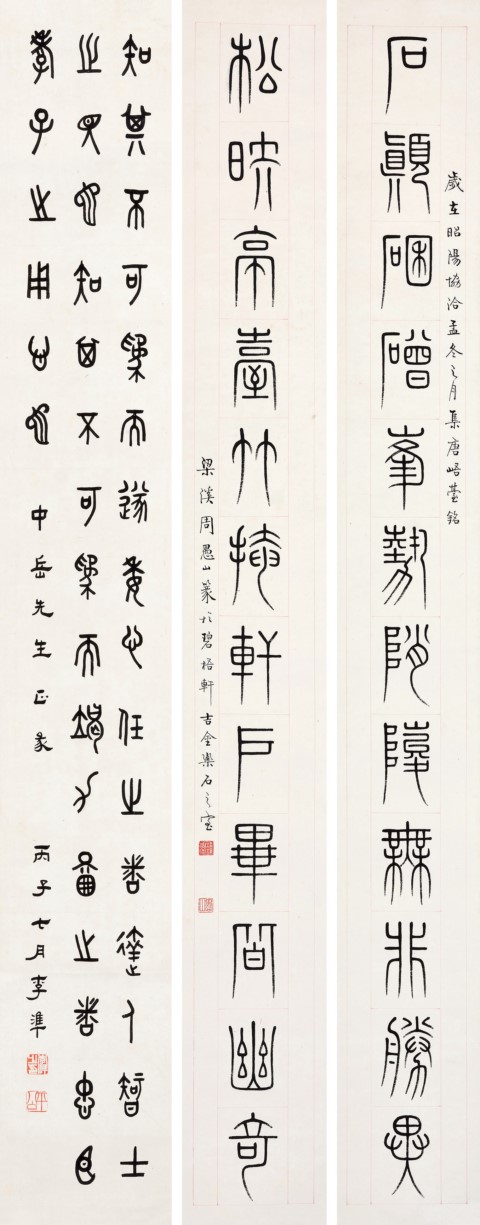 石顛硱磳峯勢陗障無非勝異
歲在昭陽協洽孟冬之月集唐峿臺銘
松映亭臺竹掩軒戶畢皆幽奇
梁溪周愚山篆於碧梧軒吉金樂石之室
知其不可為而遂委心任之者達人智士
之見也知其不可為而竭力圖之者忠臣
孝子之用心也 中岳先生正篆 丙子七月李準